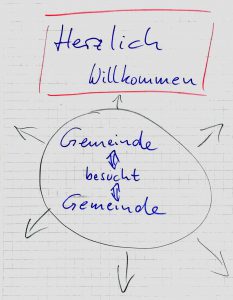 Herzlich
Willkommen
Gemeinde
besucht
Gemeinde